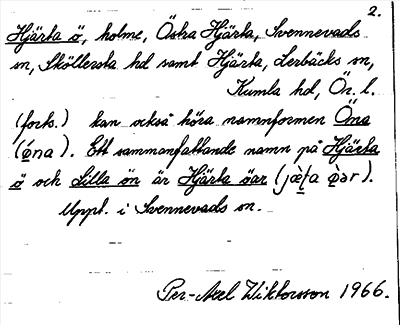 2.
Hjärta ö, holme, Östra Hjärta, Svennevads
sn, Sköllersta hd samt Hjärta, Lerbäcks sn,
Kumla hd, Ör. l.
(forts.) kan också höra namnformen Öna
(ǿna). Ett sammanfattande namn på Hjärta
ö och Lilla ön är Hjärta öar (jæ̀ʈa ø̀ər).
Uppt. i Svennevads sn.
Per-Axel Wiktorsson 1966.